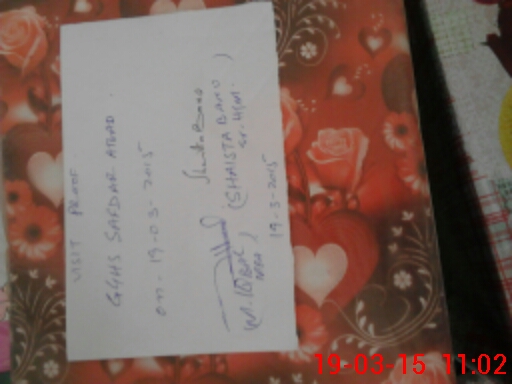 VISIT PROOF.
GGHS SAFDAR ABAD.
on. 19-03-2015
(SHAISTA BANO)
Sr-HSM.
19-3-2015
19-03-15 11:02